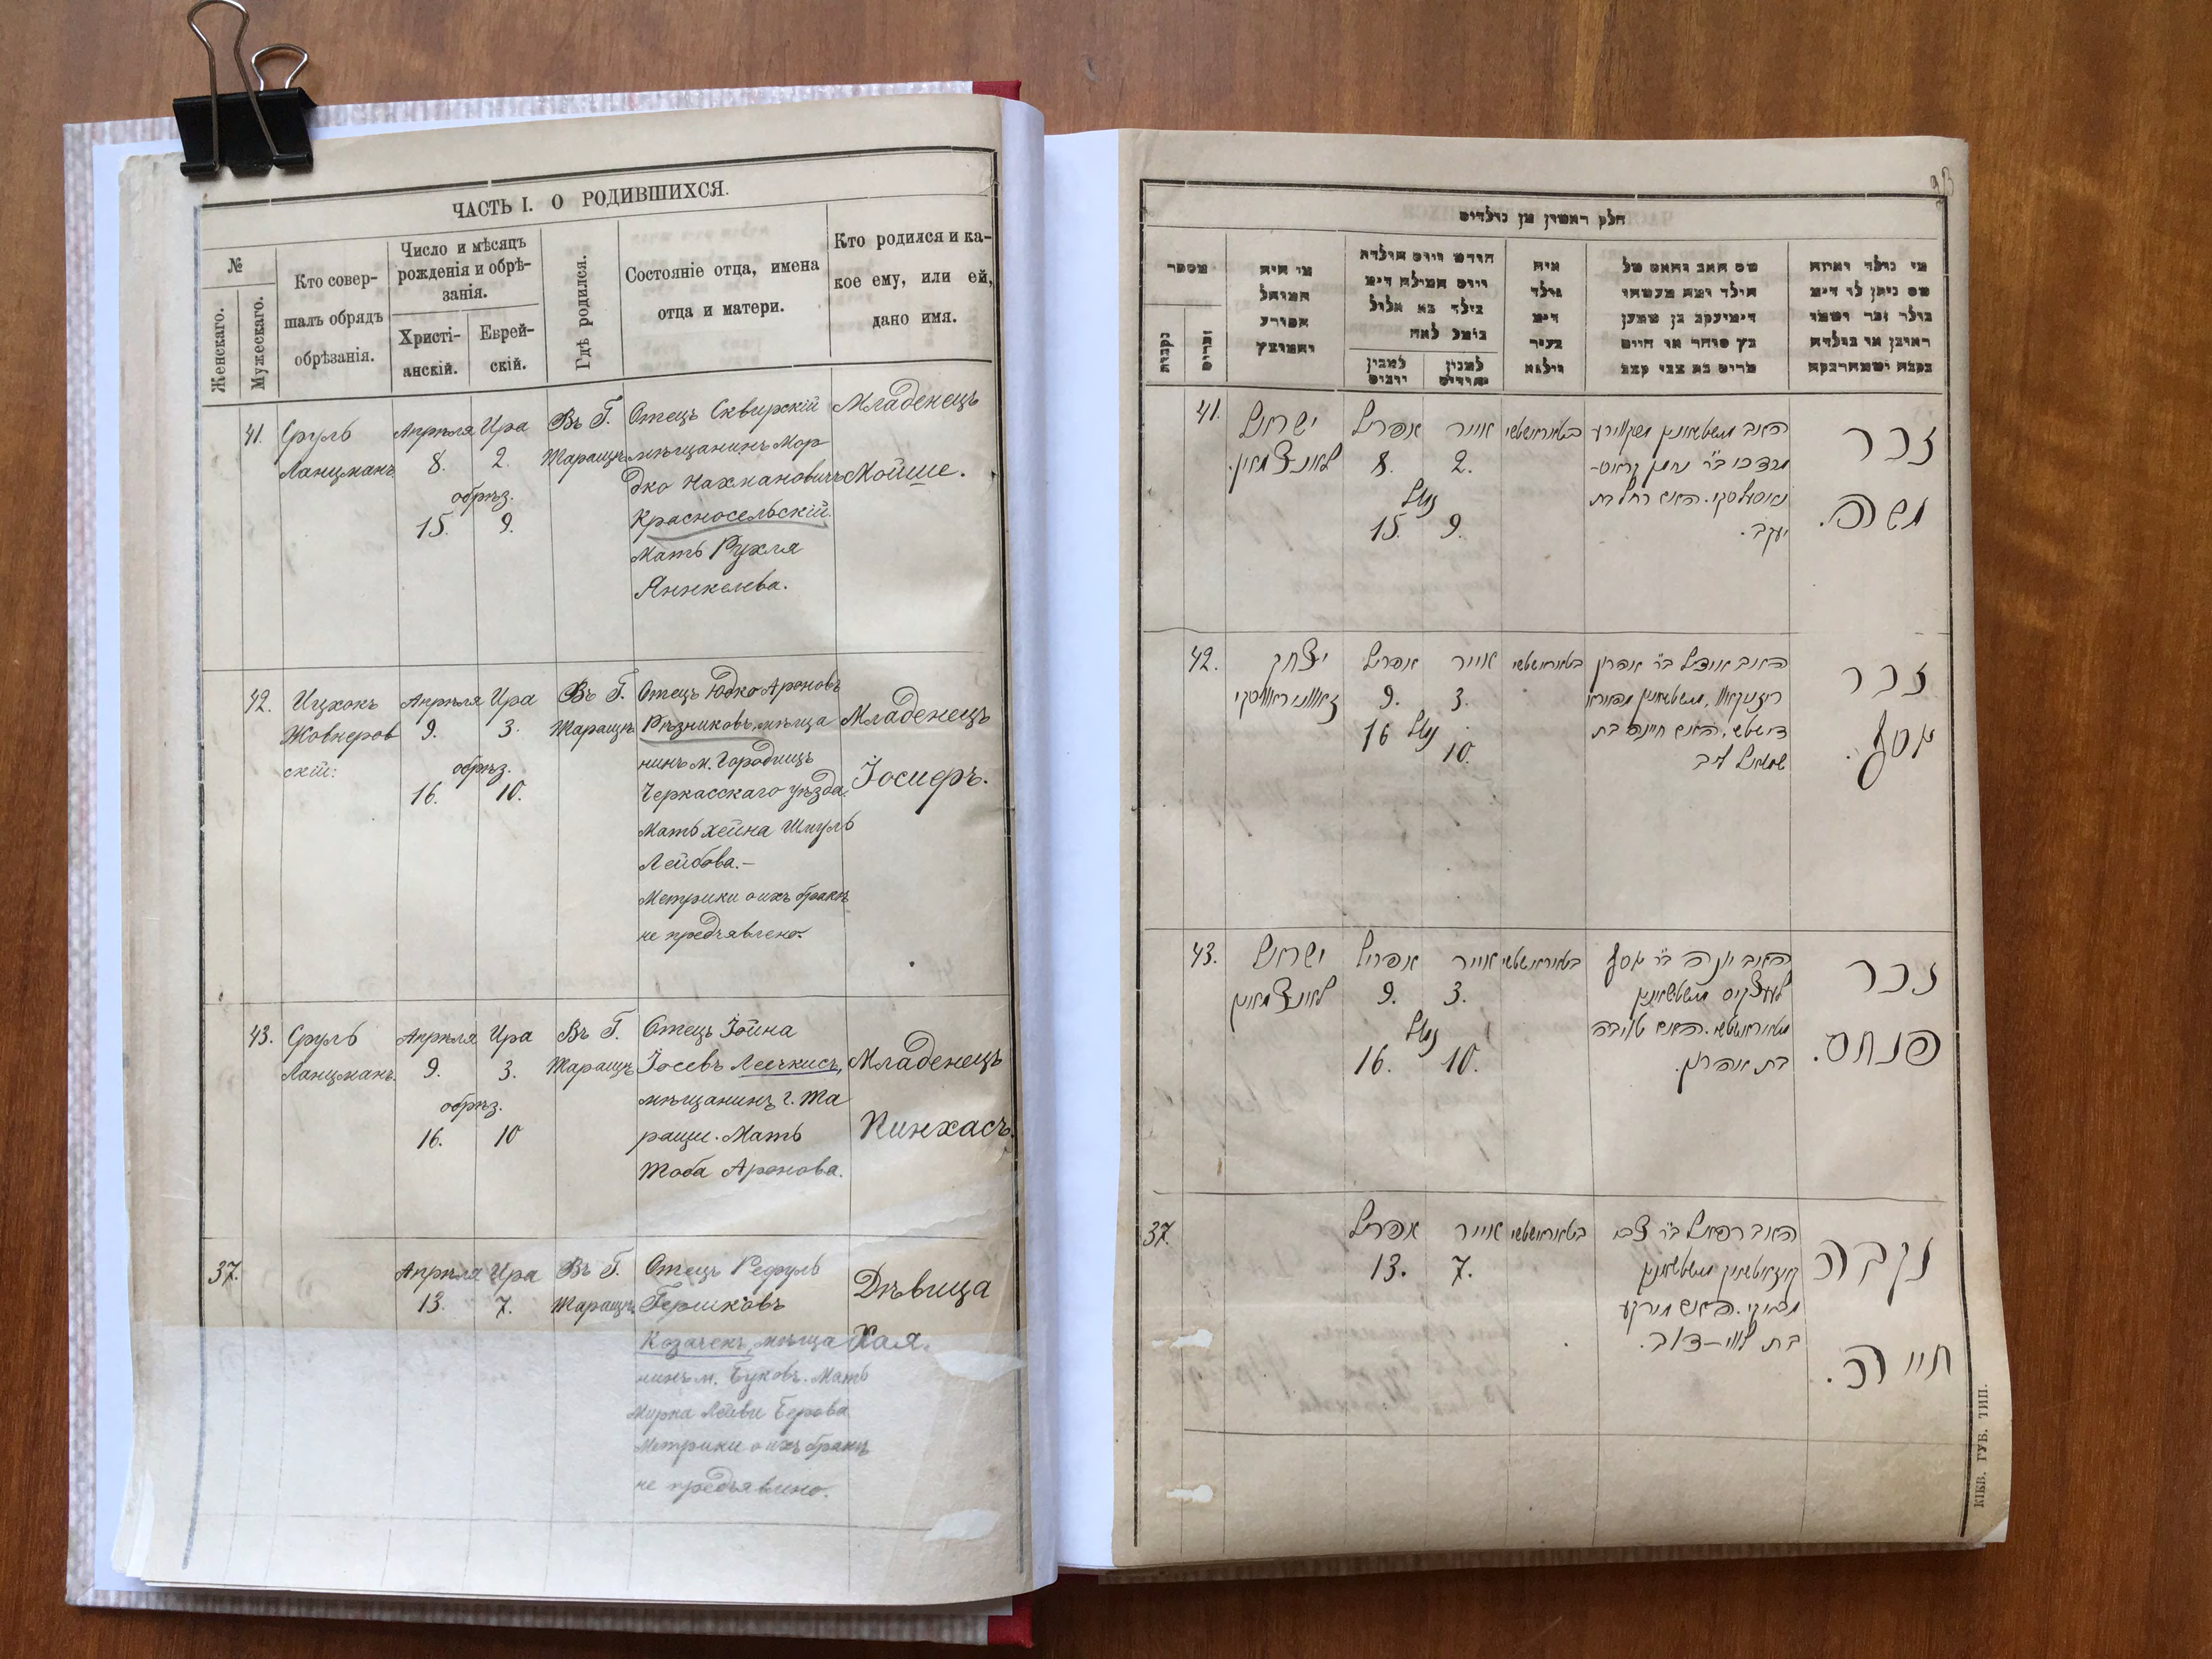 ЧАСТЬ I. О РОДИВШИХСЯ.
№
Женскаго.
Мужескаго.
Кто совер-
шалъ обрядъ
обрѣзанія.
Число и мѣсяцъ
рожденія и обрѣ-
занія.
Христі-
анскій.
Еврей-
скій.
Гдѣ родился.
Состояніе отца, имена
отца и матери.
Кто родился и ка-
кое ему, или ей,
дано имя.
41.
Сруль
Ланцманъ.
Апрѣля
8.
обрѣз.
15.
Ира
2.
9.
Въ Г.
Таращѣ
Отецъ Сквирскій
мѣщанинъ Мор
дко Нахмановичъ
Красносельскій.
Мать Рухля
Янкелева.
Младенецъ
Мойше.
42.
Ицхокъ
Жовнеров
скій:
Апрѣля
9.
обрѣз.
16.
Ира
3.
10.
Въ Г.
Таращѣ
Отецъ Юдко Ароновъ
Рѣзниковъ, мѣща
нинъ м. Городищъ
Черкасскаго уѣзда.
Мать Хейна Шмуль
Лейбова.-
Метрики о ихъ бракѣ
не предъявлено.
Младенецъ
Іосиеръ.
43.
Сруль
Ланцманъ.
Апрѣля
9.
обрѣз.
16.
Ира
3.
10
Въ Г.
Таращѣ
Отецъ Іойна
Іосевъ
мѣщанинъ г. Та
ращи. Мать
Тоба Аронова.
Младенецъ
Пинхасъ.
37.
Апрѣля
13.
Ира
7.
Въ Г.
Таращѣ
Отецъ Рефуль
Гершковъ
Козаченъ, мѣща
нинъ м. Буковъ. Мать
Мирка Лейви Берова
Метрики о ихъ бракѣ
не предъявлено.
Дѣвица
Хая.
חלק ראשון מן נולדים
מספר
נקבות
זכרים
מי היה
המוהל
חודש ויום הולדת
ויום המילה
איה
נולד
שם האב והאם של
הילד
מי נולד
שם ניתן לו
41.
ישראל
לאנצמאן.
אפריל
8.
נמול
15.
אייר
2.
9.
בטאראשטשי
האב משטשאנין מסקווירע
מרדכי ב"ר נחמן קראס-
נאסעלסקי. האם רחל בת
יעקב.
זכר
משה.
42.
יצחק
אפריל
9.
נמול
16
אייר
3.
10.
בטאראשטשי
זכר
יוסף.
43.
ישראל
לאנצמאן
אפריל
9.
נמול
16.
אייר
3.
10.
בטאראשטשי
האב יונה ב"ר יוסף
בת אהרן.
זכר
פנחס.
37.
אפריל
13.
אייר
7.
בטאראשטשי
האב רפאל ב"ר צבי
בת לוי-דוב.
נקבה
חייה.
КІЕВ. ГУБ. ТИП.